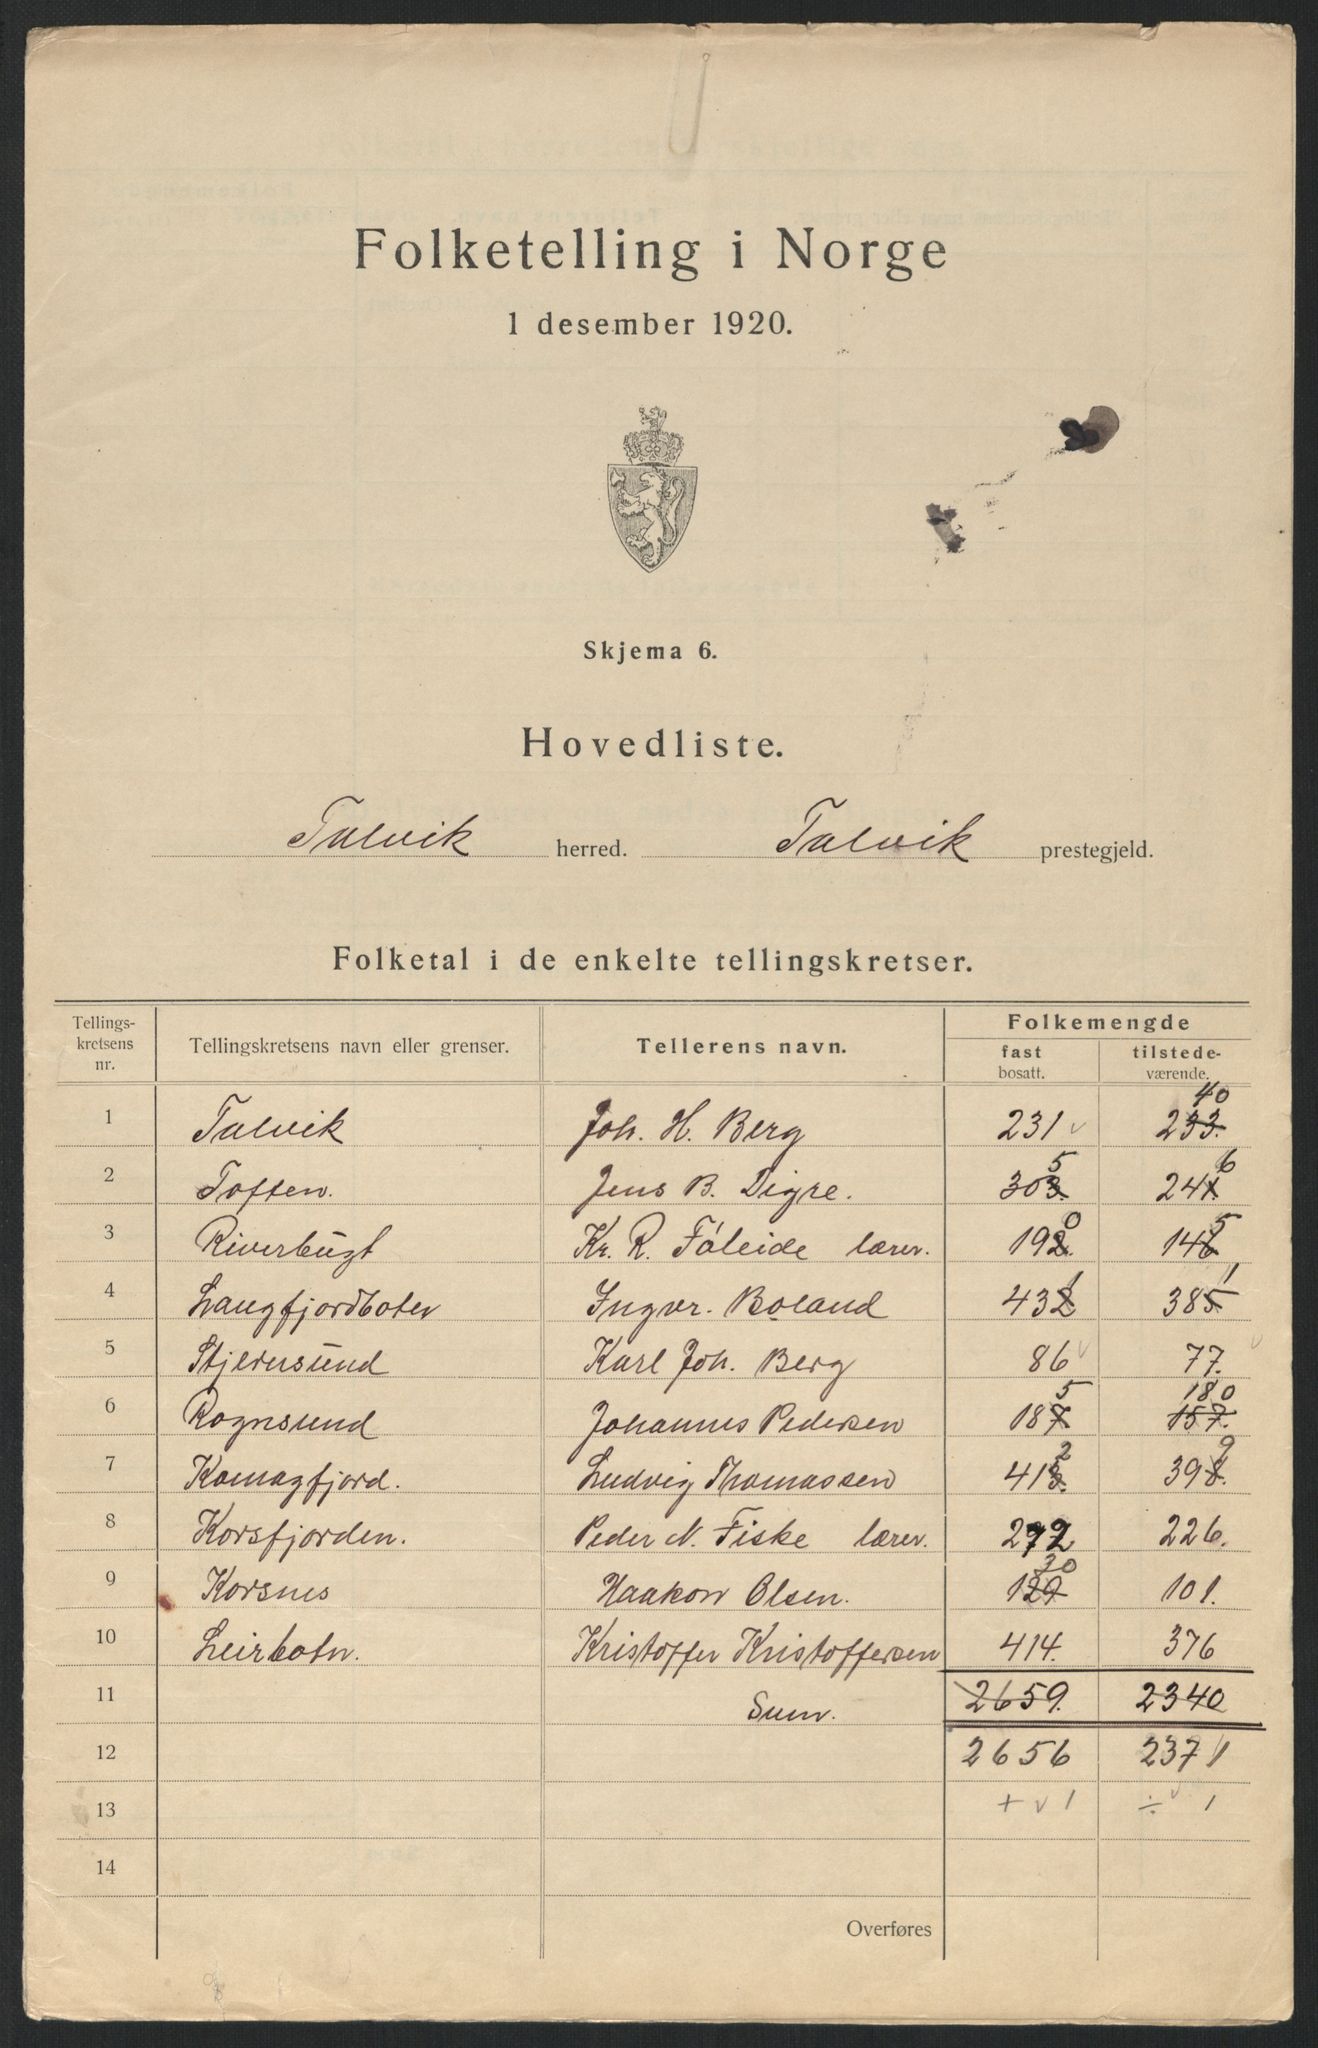 Folketelling i Norge
1 desember 1920.
Skjema 6.
Hovedliste.
Talvik herred. Talvik prestegjeld.
Folketal i de enkelte tellingskretser.
Tellings-kretsens nr. Tellingskretsens navn eller grenser. Tellerens navn. Folkemengde
fast bosatt. tilstede-værende.
40
1 Talvik Joh. H. Berg 231 v 233.
5 6
2 Toften. Jens B. Digre. 303. 241.
0 5
3 Riverbugt Kr. R. Föleide lærer. 192. 146
1 1
4 Langfjordboten Ingvr. Boland 432 385
5 Stjernsund Karl Joh. Berg 86 v 77. v
5 180
6 Rognsund Johannes Pedersen 187 157.
2 9
7 Komagfjord. Ludvig Thomassen 413. 398.
8 Korsfjorden. Peder N. Fiske lærer. 272 226.
30
9 Korsnes Haakon Olsen. 129 101.
10 Leirbotn. Kristoffer Kristoffersen 414. 376
11 Sum. 2659. 2340
12 2656 2371
13 + v 1 ÷ v 1
14
Overføres